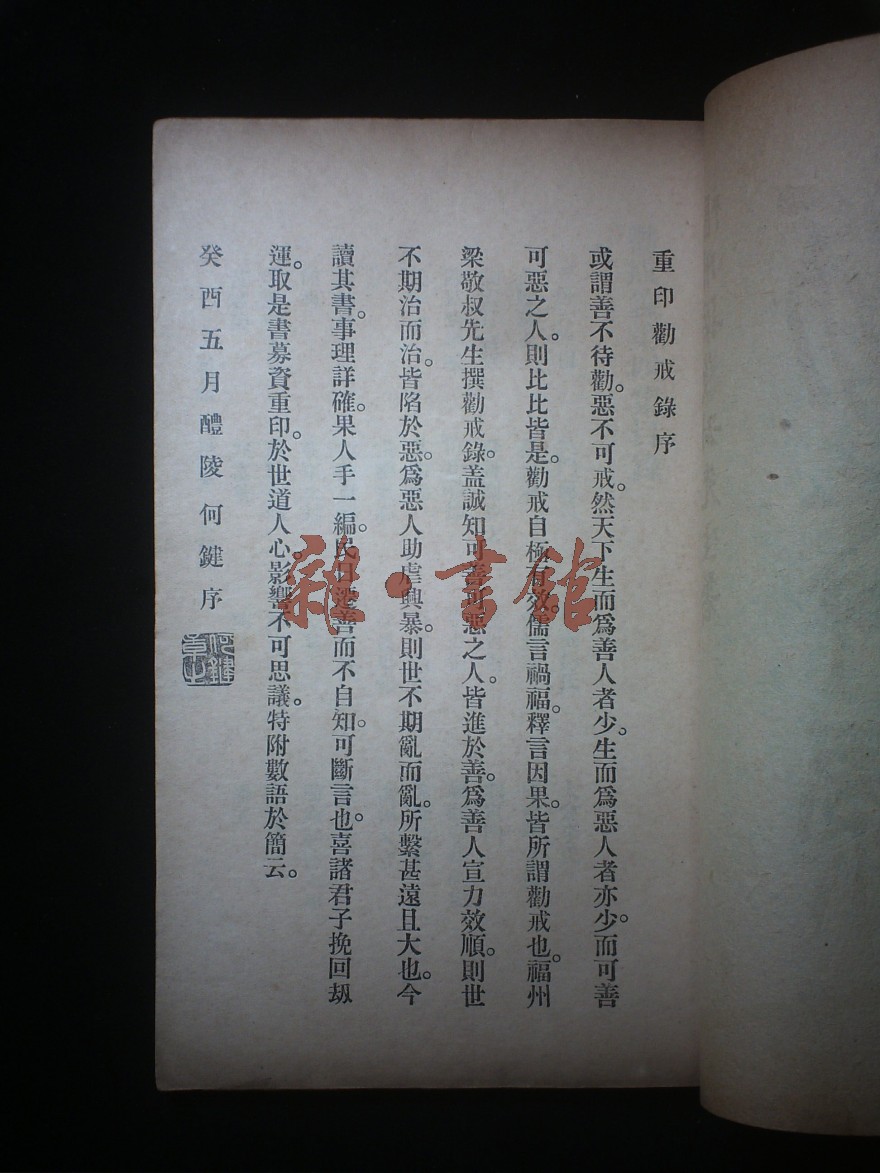 重印勸戒錄序
或謂善不待勸。惡不可戒。然天下生而爲善人者少。生而爲惡人者亦少。而可善
可惡之人。則比比皆是。勸戒自極有效。儒言禍福。釋言因果。皆所謂勸戒也。福州
梁敬叔先生撰勸戒錄。蓋誠知可善可惡之人。皆進於善。爲善人宣力效順。則世
不期治而治。皆陷於惡。爲惡人助虐興暴。則世不期亂而亂。所繫甚遠且大也。今
讀其書。事理詳確。果人手一編。民日遷善而不自知。可斷言也。喜諸君子挽回刼
運。取是書募資重印。於世道人心。影響不可思議。特附數語於簡云。
癸酉五月醴陵何鍵序
何鍵之印
雜·書館